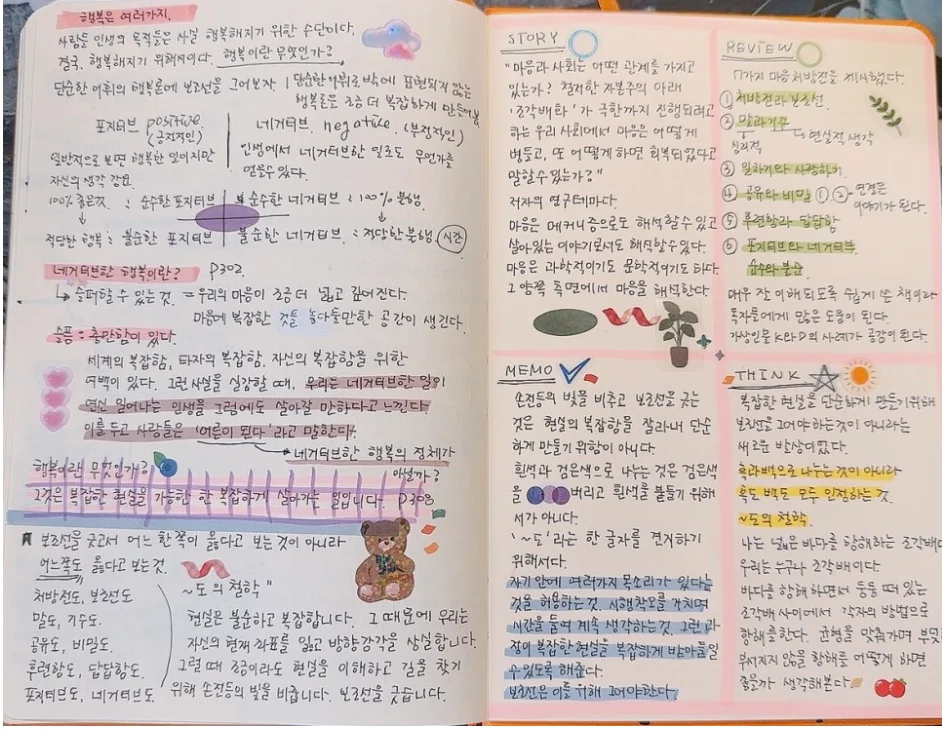 행복은 여러가지.
사람들 인생의 목적들은 사실 행복해지기 위한 수단이다.
결국, 행복해지기 위해서이다. 행복이란 무엇인가?
단순한 어휘의 행복론에 보조선을 그어보자
단순한 어휘로밖에 표현되지 않는
행복론은 조금 더 복잡하게 만들어봄
포지티브 positive
(긍정적인)
일반적으로 보면 행복한 일이지만
자신의 생각 강요.
네거티브. negative. (부정적인)
인생에서 네거티브한 일로도 무언가를
얻을수 있다.
100% 좋은것. : 순수한 포지티브
순수한 네거티브 : 100% 불행.
적당한 행복 : 불순한 포지티브
불순한 네거티브. : 적당한 불행. 시간
네거티브한 행복이란? p302.
↳ 슬퍼할 수 있는 것. = 우리의 마음이 조금 더 넓고 깊어진다.
마음에 복잡한 것을 놓아둘만한 공간이 생긴다.
슬픔 : 충만함이 있다.
세계의 복잡함, 타자의 복잡함, 자신의 복잡함을 위한
여백이 있다. 그런 사실을 실감할 때, 우리는 네거티브한 일이
연신 일어나는 인생을 그럼에도 살아갈 만하다고 느낀다.
이를 두고 사람들은 '어른이 된다'라고 말한다.
→ 네거티브한 행복의 정체가
아닐까?
행복이란 무엇인가?
그것은 복잡한 현실을 가능한 한 복잡하게 살아가는 일입니다. P308
보조선을 긋고서 어느 한쪽이 옳다고 보는 것이 아니라
어느쪽도 옳다고 보는 것.
처방전도, 보조선도
말도, 기수도.
공유도, 비밀도.
후련함도, 답답함도.
포지티브도, 네거티브도.
~도의 철학"
현실은 불순하고 복잡합니다. 그 때문에 우리는
자신의 현재 좌표를 잃고 방향감각을 상실합니다.
그럴 때 조금이라도 현실을 이해하고 길을 찾기
위해 손전등의 빛을 비춥니다. 보조선을 긋습니다.
STORY
"마음과 사회는 어떤 관계를 가지고
있는가? 철저한 자본주의 아래
'조각배화'가 극한까지 진행되려고
하는 우리 사회에서 마음은 어떻게
버틸고, 또 어떻게 하면 회복되었다고
말할 수 있는가?"
저자의 연구테마다.
마음은 메커니즘으로도 해석할수 있고
살아있는 이야기로서도 해석할수있다.
마음은 과학적이기도 문학적이기도 하다.
그 양쪽 측면에서 마음을 해석한다.
REVIEW
7가지 마음처방전을 제시했다.
① 처방전과 보조선.
② 말과 기수
↳ 현실적 생각
심리적
③ 일하기와 사랑하기.
④ 공유와 비밀 ①, ②-연결은
이야기가 된다.
⑤ 후련함과 답답함
⑥ 포지티브와 네거티브
순수와 불순
매우 잘 이해 되도록 쉽게 쓴 책이라
독자들에게 많은 도움이 된다.
가상인물 K와 D의 사례가 공감이 된다.
MEMO
손전등의 빛을 비추고 보조선을 긋는
것은 현실의 복잡함을 잘라내 단순
하게 만들기 위함이 아니다.
흰색과 검은색으로 나누는 것은 검은색
을 버리고 흰색을 붙들기 위해
서가 아니다.
'~도'라는 한 글자를 견지하기
위해서다.
자기 안에 여러가지 목소리가 있다는
것을 허용하는 것. 시행착오를 거치며
시간을 들여 계속 생각하는 것. 그런 과
정이 복잡한 현실을 복잡하게 받아들일
수 있도록 해준다.
보조선은 이를 위해 그어야한다.
THINK
복잡한 현실을 단순하게 만들기위해
보조선을 그어야하는것이 아니라는
새로운 발상이었다.
흑과 백으로 나누는것이 아니라
흑도 백도 모두 인정하는 것.
~도의 철학.
나는 넓은 바다를 항해하는 조각배다
우리는 누구나 조각배이다.
바다를 항해 하면서 둥둥 떠 있는
조각배 사이에서 각자의 방법으로
항해를 한다. 균형을 맞춰가며 부딪
부서지지 않을 항해를 어떻게 하면
좋을까 생각해본다.